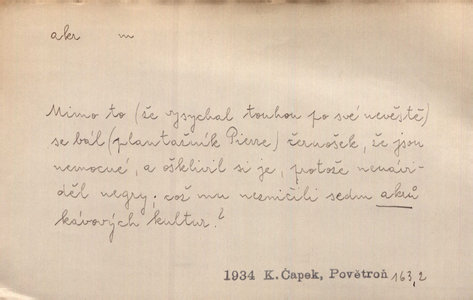 akr m
Mimo to (že vysychal touhou po své nevěstě)
se bál (plantážník Pierre) černošek, že jsou
nemocné, a ošklivil si je, protože nenávi-
děl negry; což mu nezničili sedm akrů
kávových kultur?
1934 K.Čapek, Povětroň 163,2